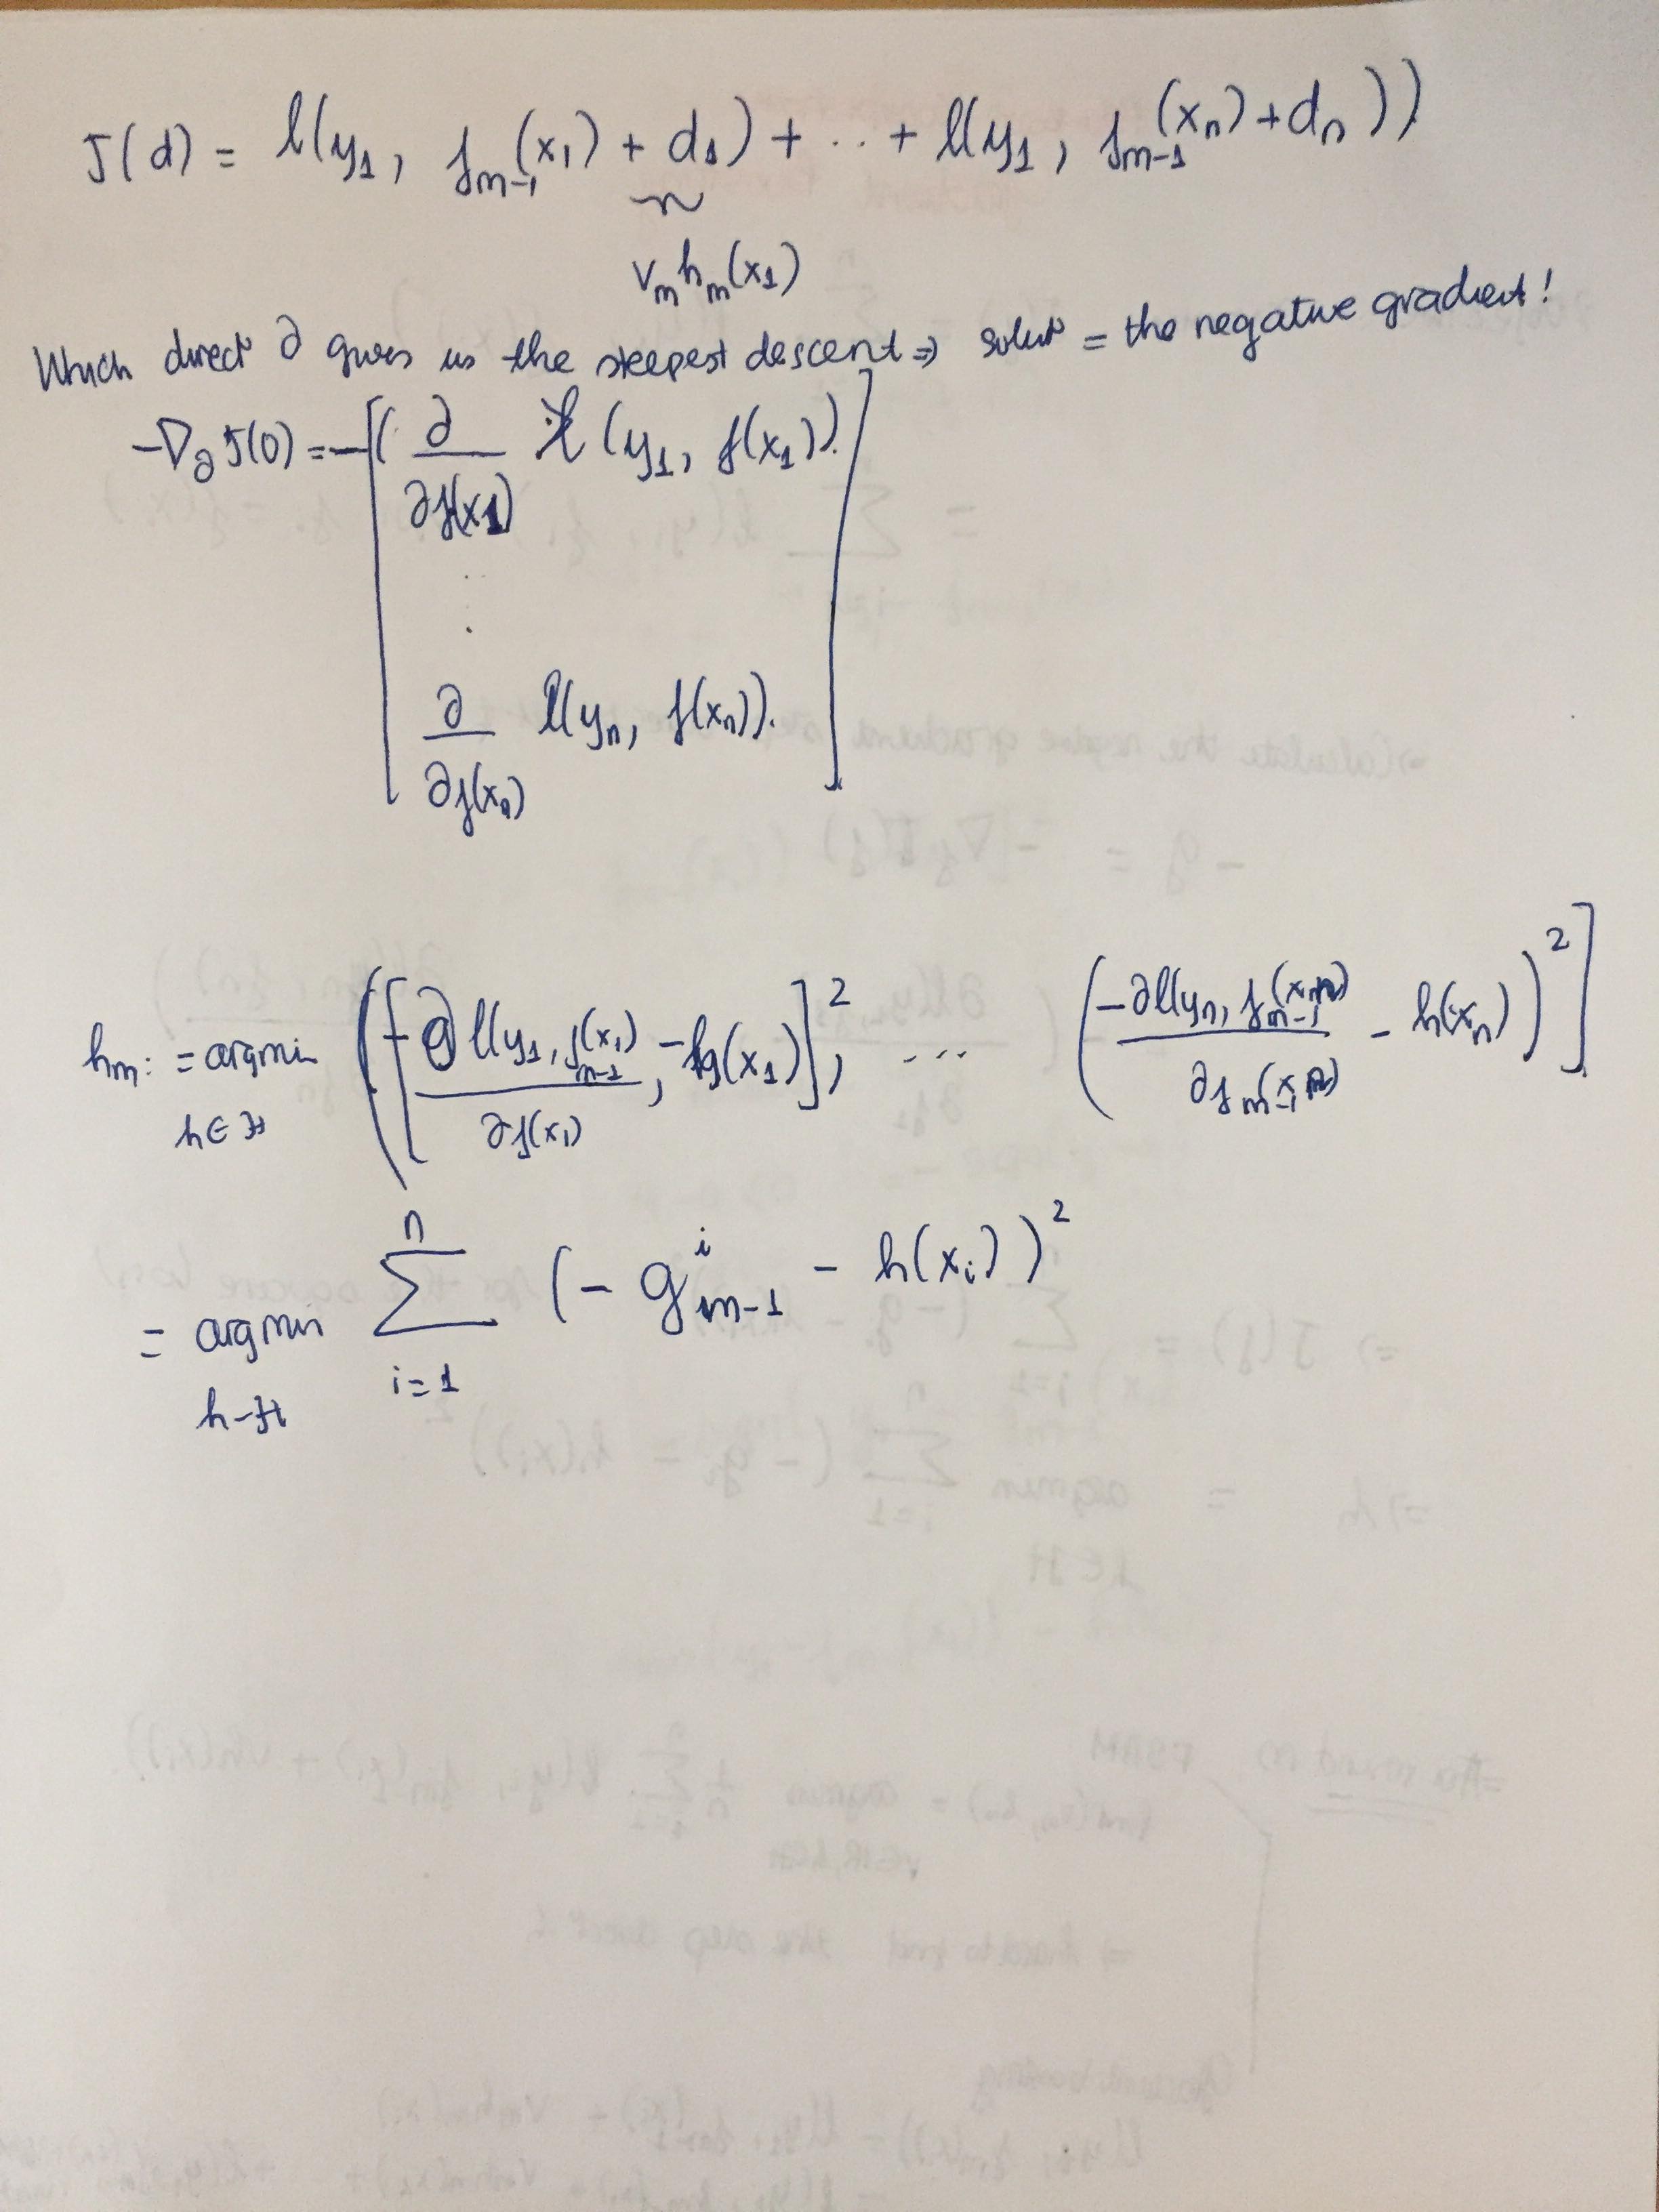 J(d) = l(y₁, f_{m-1}(x₁) + d₁) + ... + l(y₁, f_{m-1}(x_n) + d_n))
v_m h_m(x₁)
Which direct° ∂ gives us the steepest descent ⇒ solut° = the negative gradient!
-∇_∂ J(0) = -[(∂/∂f(x₁) l(y₁, f(x₁)).
⋮
∂/∂f(x_n) l(y_n, f(x_n)).]
h_m: = argmin_{h∈H} ([-∂l(y₁, f_{m-1}(x₁))/∂f(x₁), -h(x₁)]², ... (-∂l(y_n, f_{m-1}(x_n))/∂f_{m-1}(x_n) - h(x_n))²]
= argmin_{h-H} Σ_{i=1}^{n} (-g^i_{m-1} - h(x_i))²